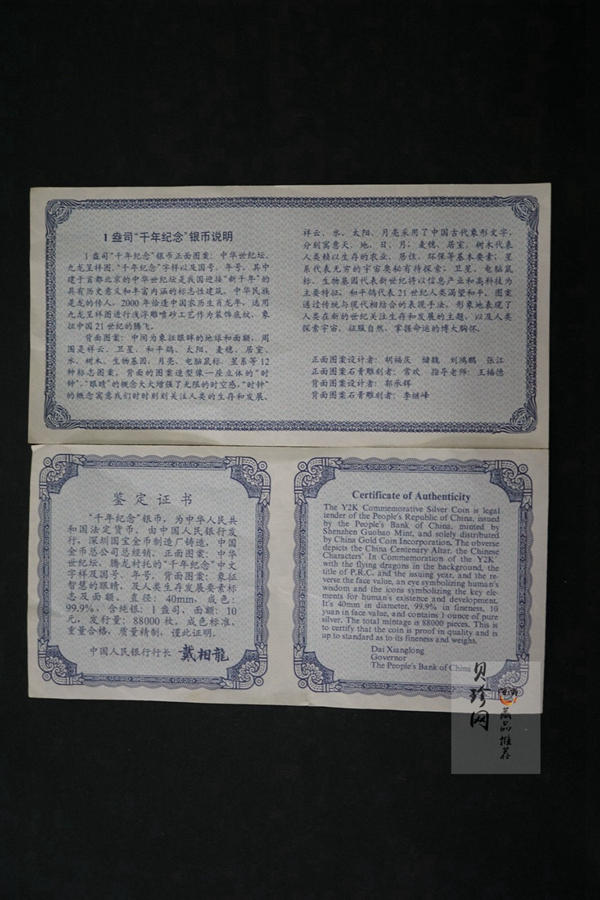 1 盎司“千年纪念”银币说明
1 盎司“千年纪念”银币正面图案：中华世纪坛、
九龙呈样图、“千年纪念”字样以及国号、年号，其中
建于首都北京的中华世纪坛是我国迎接“新千年”的
具有历史意义和丰富内涵的标志性建筑。中华民族
是龙的传人，2000 年恰逢中国农历生肖龙年，选用
九龙呈样图进行浅浮雕喷砂工艺作为装饰底纹，象
征中国 21 世纪的腾飞。
背面图案：中间为象征眼眸的地球和面额，周
围是祥云、卫星、和平鸽、太阳、麦穗、居室、
水、树木、生物基因、月亮、电脑鼠标、星系等 12
种标志图案，背面的图案造型像一座立体的“时
钟”，“眼睛”的概念大大增强了无限的时空感，“时钟”
的概念寓意我们时时刻刻关注人类的生存和发展。
祥云、水、太阳、月亮采用了中国古代象形文字，
分别寓意天、地、日、月；麦穗、居室、树木代表
人类赖以生存的农业、居住、环保等基本要素；星
系代表无穷的宇宙奥秘有待探索；卫星、电脑鼠
标、生物基因代表新世纪将以信息产业和高科技为
主要特征；和平鸽代表 21 世纪人类渴望和平。图案
通过传统与现代相结合的表现手法，形象地表现了
人类在新的世纪关注生存和发展的主题，以及人类
探索宇宙、征服自然、掌握命运的博大胸怀。
正面图案设计者：胡福庆 储魏 刘鸿鹏 张江
正面图案石膏雕刻者：常欢 指导老师：王福德
背面图案设计者：郭承辉
背面图案石膏雕刻者：李继峰
鉴定证书
“千年纪念”银币，为中华人民共
和国法定货币，由中国人民银行发
行，深圳国宝金币制造厂铸造，中国
金币总公司总经销。正面图案：中华
世纪坛、腾龙衬托的“千年纪念”中文
字样及国号、年号，背面图案：象征
智慧的眼睛，及人类生存发展要素标
志及面额，直径：40mm，成色：
99.9%，含纯银：1 盎司，面额：10
元，发行量：88000 枚，成色标准，
重量合格，质量精制，谨此证明。
中国人民银行行长 戴相龍
Certificate of Authenticity
The Y2K Commemorative Silver Coin is legal
tender of the People's Republic of China, issued
by the People's Bank of China, minted by
Shenzhen Guobao Mint, and solely distributed
by China Gold Coin Incorporation. The obverse
depicts the China Centenary Altar, the Chinese
Characters' In Commemoration of the Y2K'
with the flying dragons in the background, the
title of P.R.C. and the issuing year, and the re-
verse the face value, an eye symbolizing human's
wisdom and the icons symbolizing the key ele-
ments for human's existence and development.
It's 40mm in diameter, 99.9% in fineness, 10
yuan in face value, and contains 1 ounce of pure
silver. The total mintage is 88000 pieces. This is
to certify that the coin is proof in quality and is
up to standard as to its fineness and weight.
Dai Xianglong
Governor
The People's Bank of China
贝珍网
藏品推荐